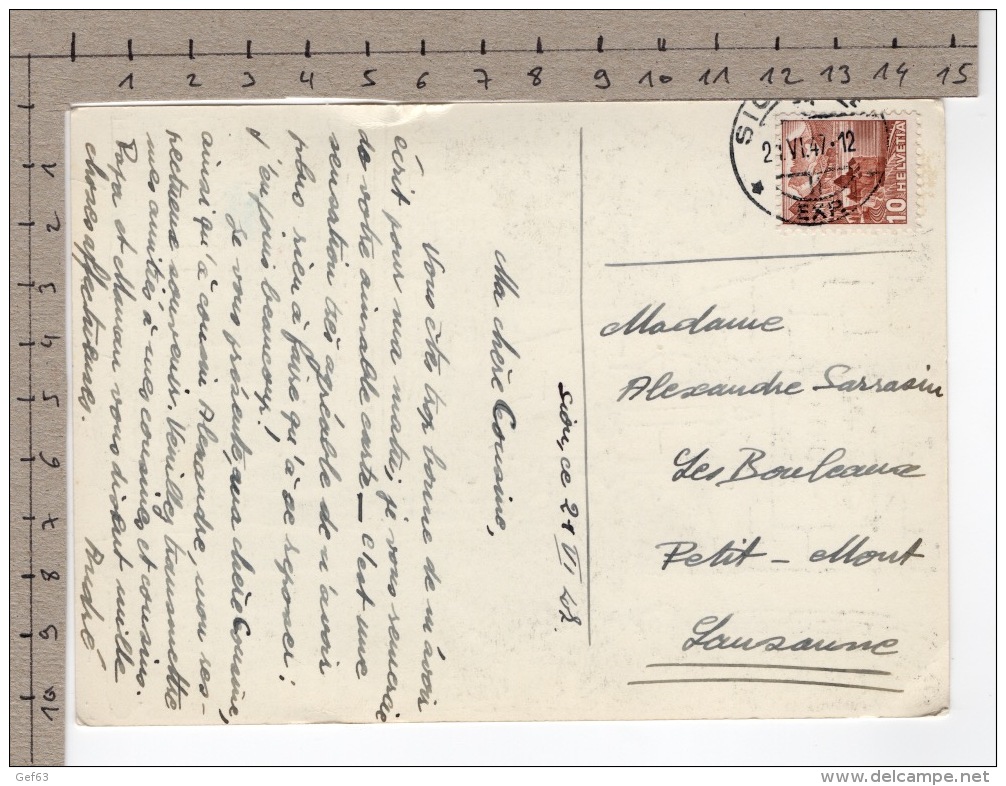 1 2 3 4 5 6 7 8 9 10 11 12 13 14 15
1 2 3 4 5 6 7 8 9 10
VI.47-12
EXP.
HELVETIA
10
Madame
Alexandre Sarrasin
Les Bouleaux
Petit-Mont
Lausanne
Sion, ce 21 VI 48.
Ma chère Cousine,
Vous êtes trop bonne de m'avoir
écrit pour ma matu; je vous remercie
de votre aimable carte — c'est une
sensation très agréable de n'avoir
plus rien à faire qu'à se reposer:
j'en jouis beaucoup!
Je vous présente, ma chère Cousine,
ainsi qu'à cousin Alexandre, mon res-
pectueux souvenir. Veuillez transmettre
mes amitiés à mes cousines et cousins.
Papa et Maman vous disent mille
choses affectueuses.
André
Gef63
www.delcampe.net